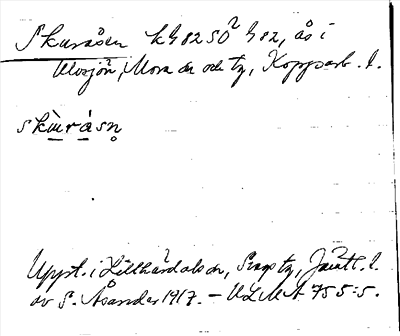 Skuråsen k482502482, ås i
Morsjön, Mora sn och tg, Kopparb. l.
skuråsn̥
Uppt. i Lillhärdals sn, Svegs tg, Jämtl. l.
av S. Åsander 1917. – ULMA 755:5.